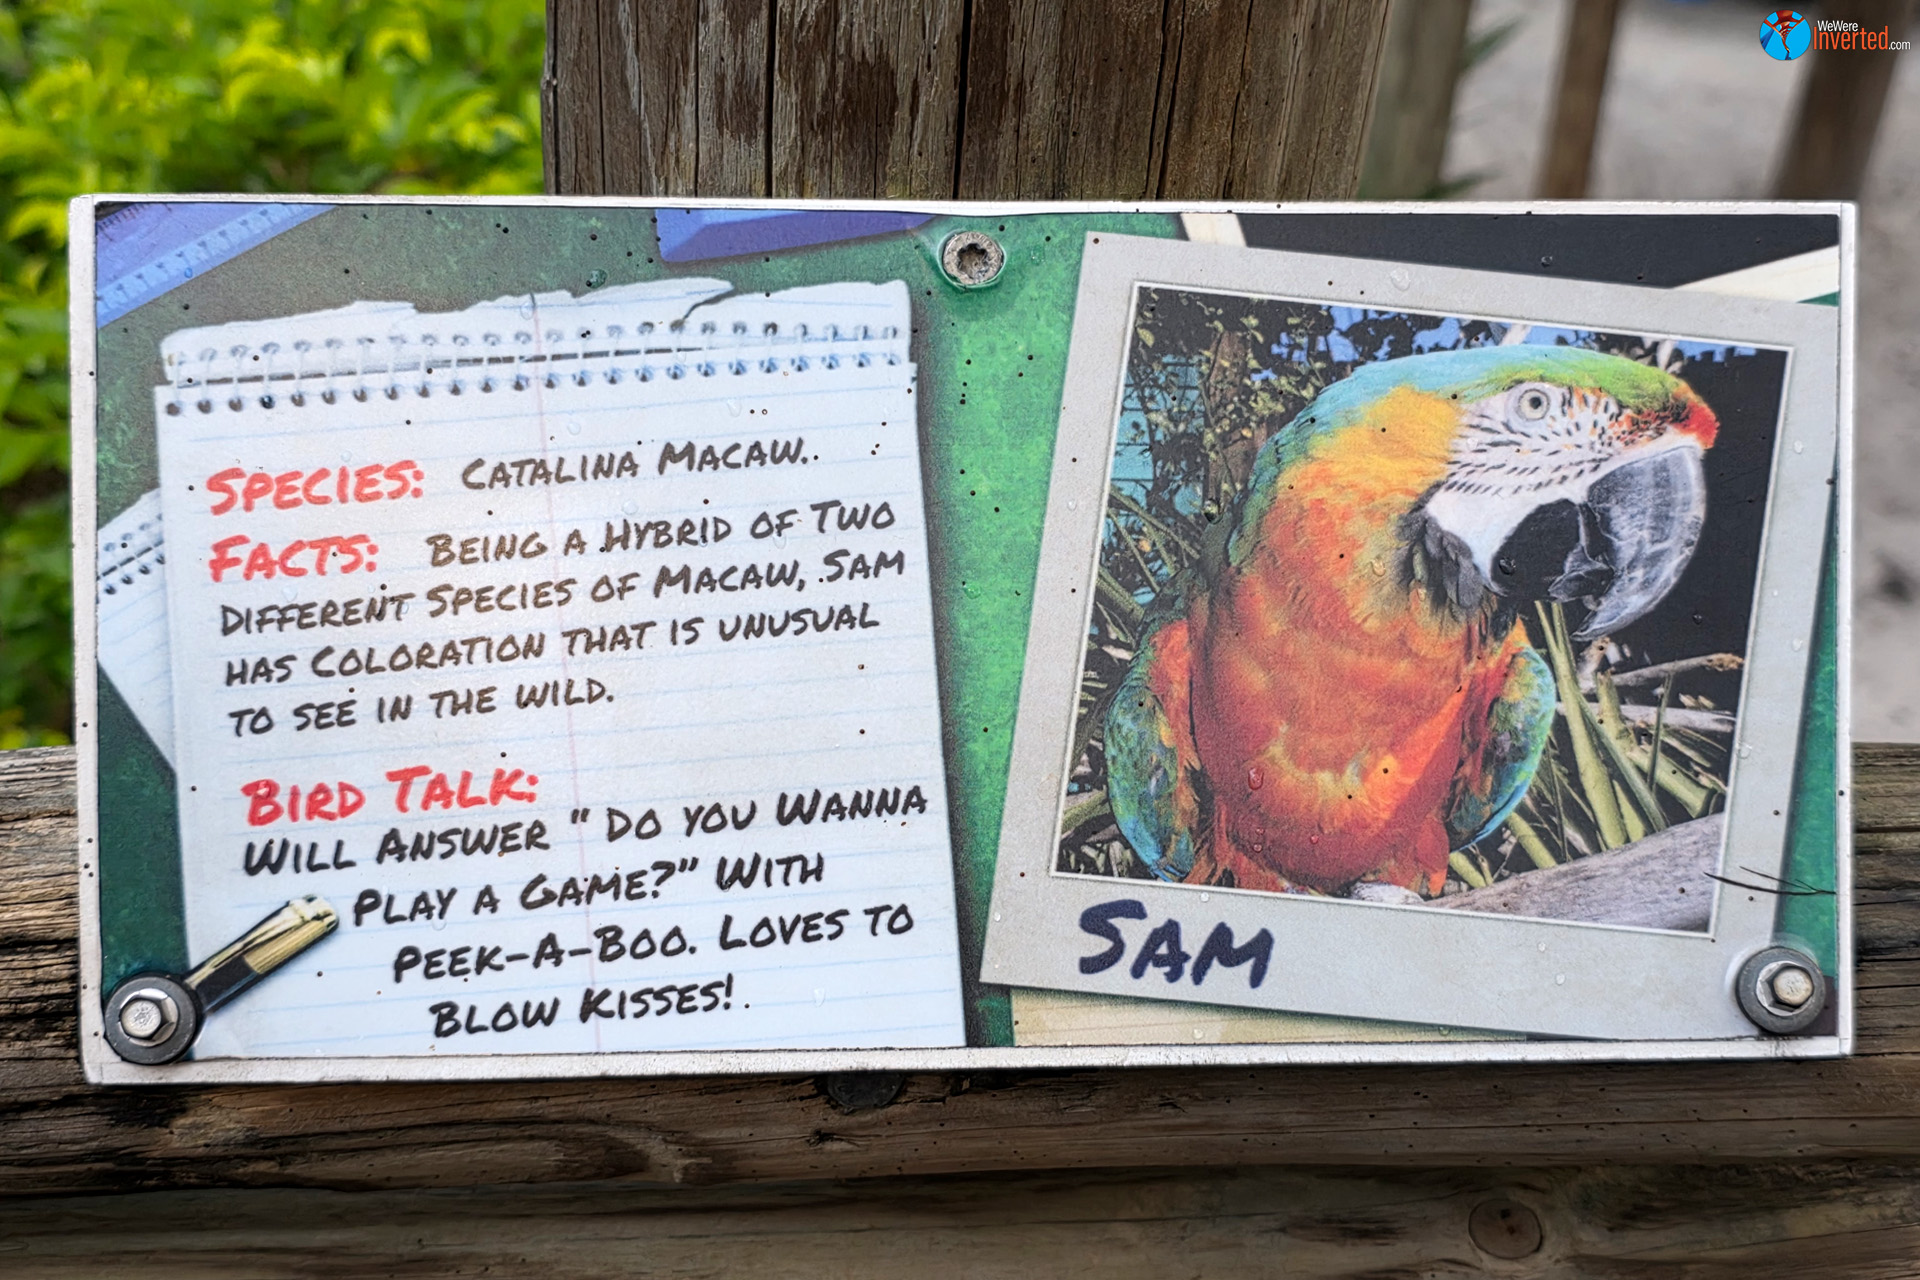 WeWere
Inverted.com
SPECIES: CATALINA MACAW.
FACTS: BEING A HYBRID OF TWO
DIFFERENT SPECIES OF MACAW, SAM
HAS COLORATION THAT IS UNUSUAL
TO SEE IN THE WILD.
BIRD TALK:
WILL ANSWER "DO YOU WANNA
PLAY A GAME?" WITH
PEEK-A-BOO. LOVES TO
BLOW KISSES!
SAM